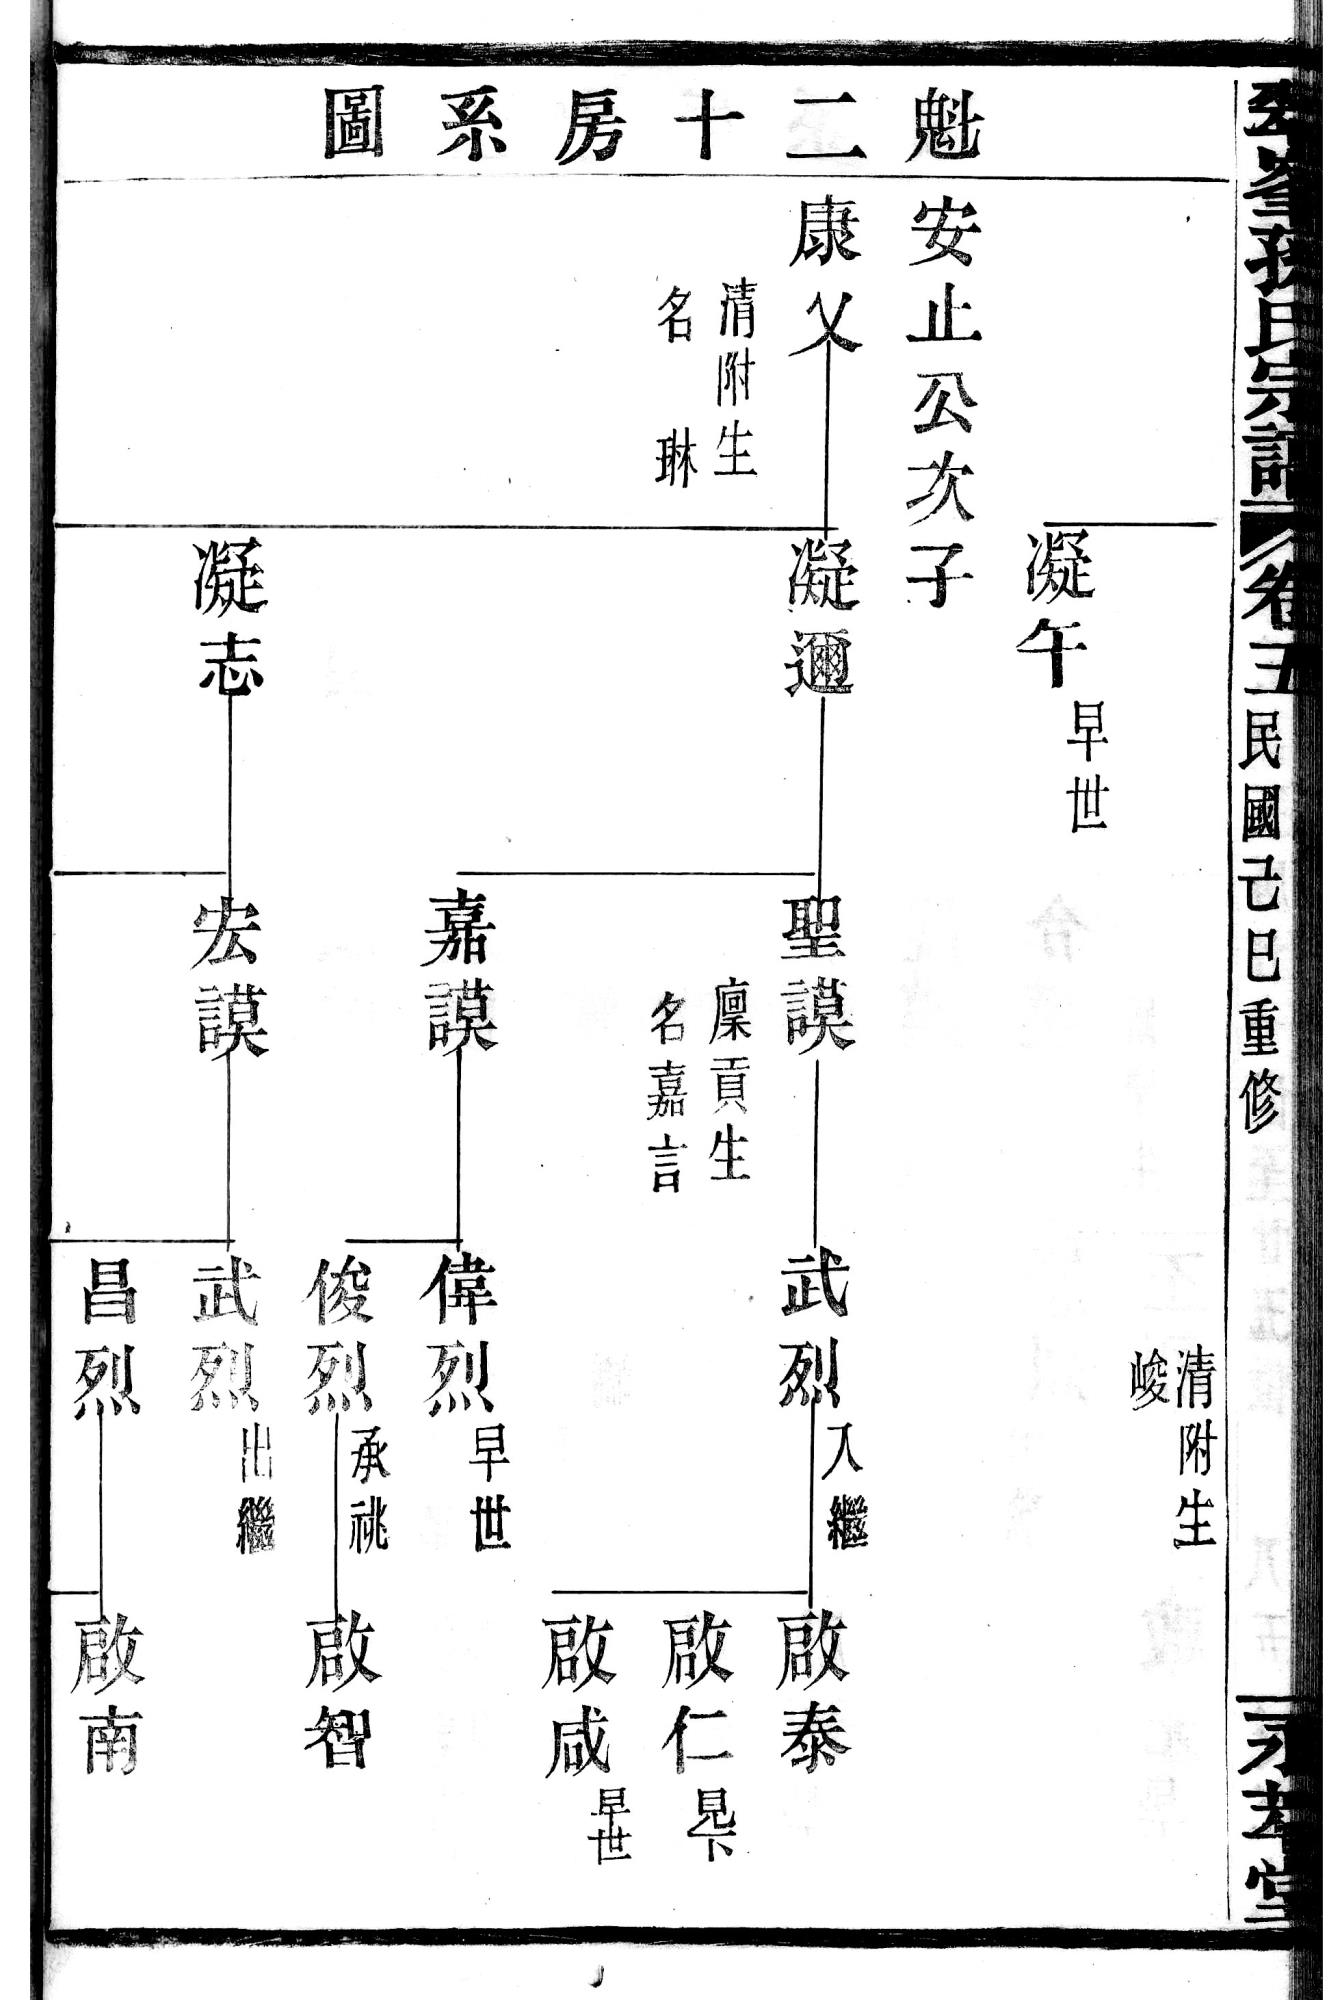 孫氏宗譜
卷五
民國己巳重修
堂
魁二十房系圖
清附生
峻
凝午
早世
安止公次子
康父
清附生
名琳
凝邇
聖謨
廩貢生
名嘉言
武烈
入繼
啟泰
啟仁
見下
啟咸
早世
嘉謨
偉烈
早世
俊烈
承祧
啟智
凝志
宏謨
武烈
出繼
昌烈
啟南